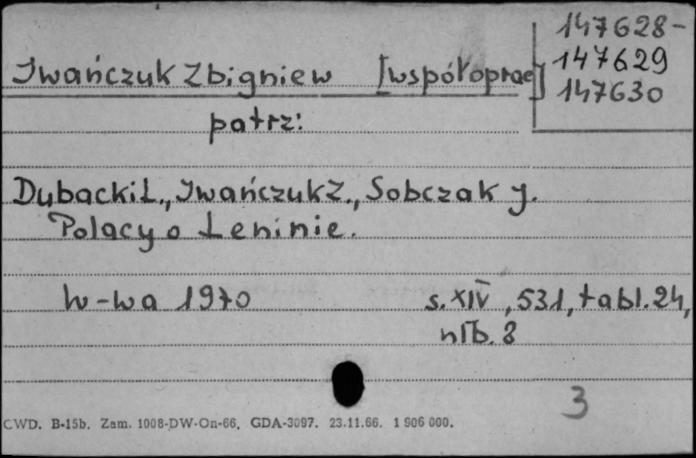 147628-
147629
147630
Iwańczuk Zbigniew [współoprac]
patrz:
Dubacki L., Iwańczuk Z., Sobczak J.
Polacy o Leninie.
W-wa 1970 s. XIV, 531, tabl. 24,
nlb. 8
3
CWD. B-15b. Zam. 1008-DW-On-66. GDA-3097. 23.11.66. 1 906 000.